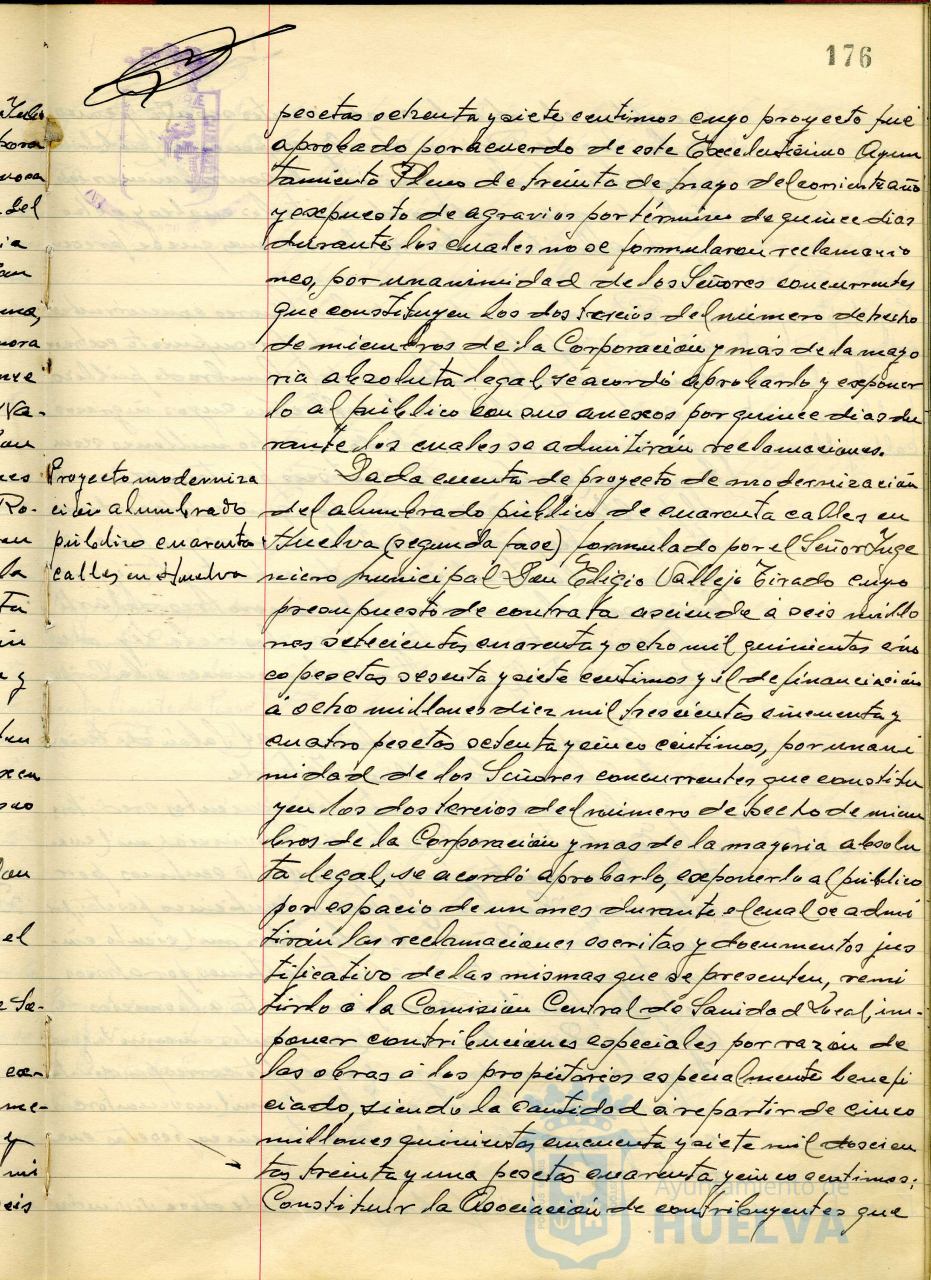 176
pesetas ochenta y siete centimos cuyo proyecto fué
aprobado por acuerdo de este Excelentisimo Ayun
tamiento Pleno de treinta de mayo del corriente año
y expuesto de agravios por término de quince dias
durante los cuales no se formularon reclamacio
nes, por unanimidad de los Señores concurrentes
que constituyen los dos tercios del número de hecho
de miembros de la Corporación y más de la mayo
ria absoluta legal, se acordó aprobarlo y exponer
lo al público con sus anexos por quince dias du
rante los cuales se admitirán reclamaciones.
Proyecto moderniza
ción alumbrado
público cuarenta
calles en Huelva
Dada cuenta de proyecto de modernización
del alumbrado público de cuarenta calles en
Huelva (segunda fase) formulado por el Señor Inge
niero municipal Don Eligio Vallejo Tirado cuyo
presupuesto de contrata asciende á seis millo
nes setecientas cuarenta y ocho mil quinientas cin
co pesetas sesenta y siete centimos y el de financiación
á ocho millones diez mil trescientas cincuenta y
cuatro pesetas setenta y cinco centimos, por unani
midad de los Señores concurrentes que constitu
yen los dos tercios del número de hecho de miem
bros de la Corporación y mas de la mayoria absolu
ta legal, se acordó aprobarlo, exponerlo al público
por espacio de un mes durante el cual se admi
tirán las reclamaciones escritas y documentos jus
tificativo de las mismas que se presenten, remi
tirlo á la Comisión Central de Sanidad Local, im-
poner contribuciones especiales por razón de
las obras á los propietarios especialmente benefi
ciado, siendo la cantidad á repartir de cinco
millones quinientas cincuenta y siete mil doscien
tas treinta y una pesetas cuarenta y cinco centimos;
Constituir la Asociación de contribuyentes que
Ayuntamiento de
HUELVA